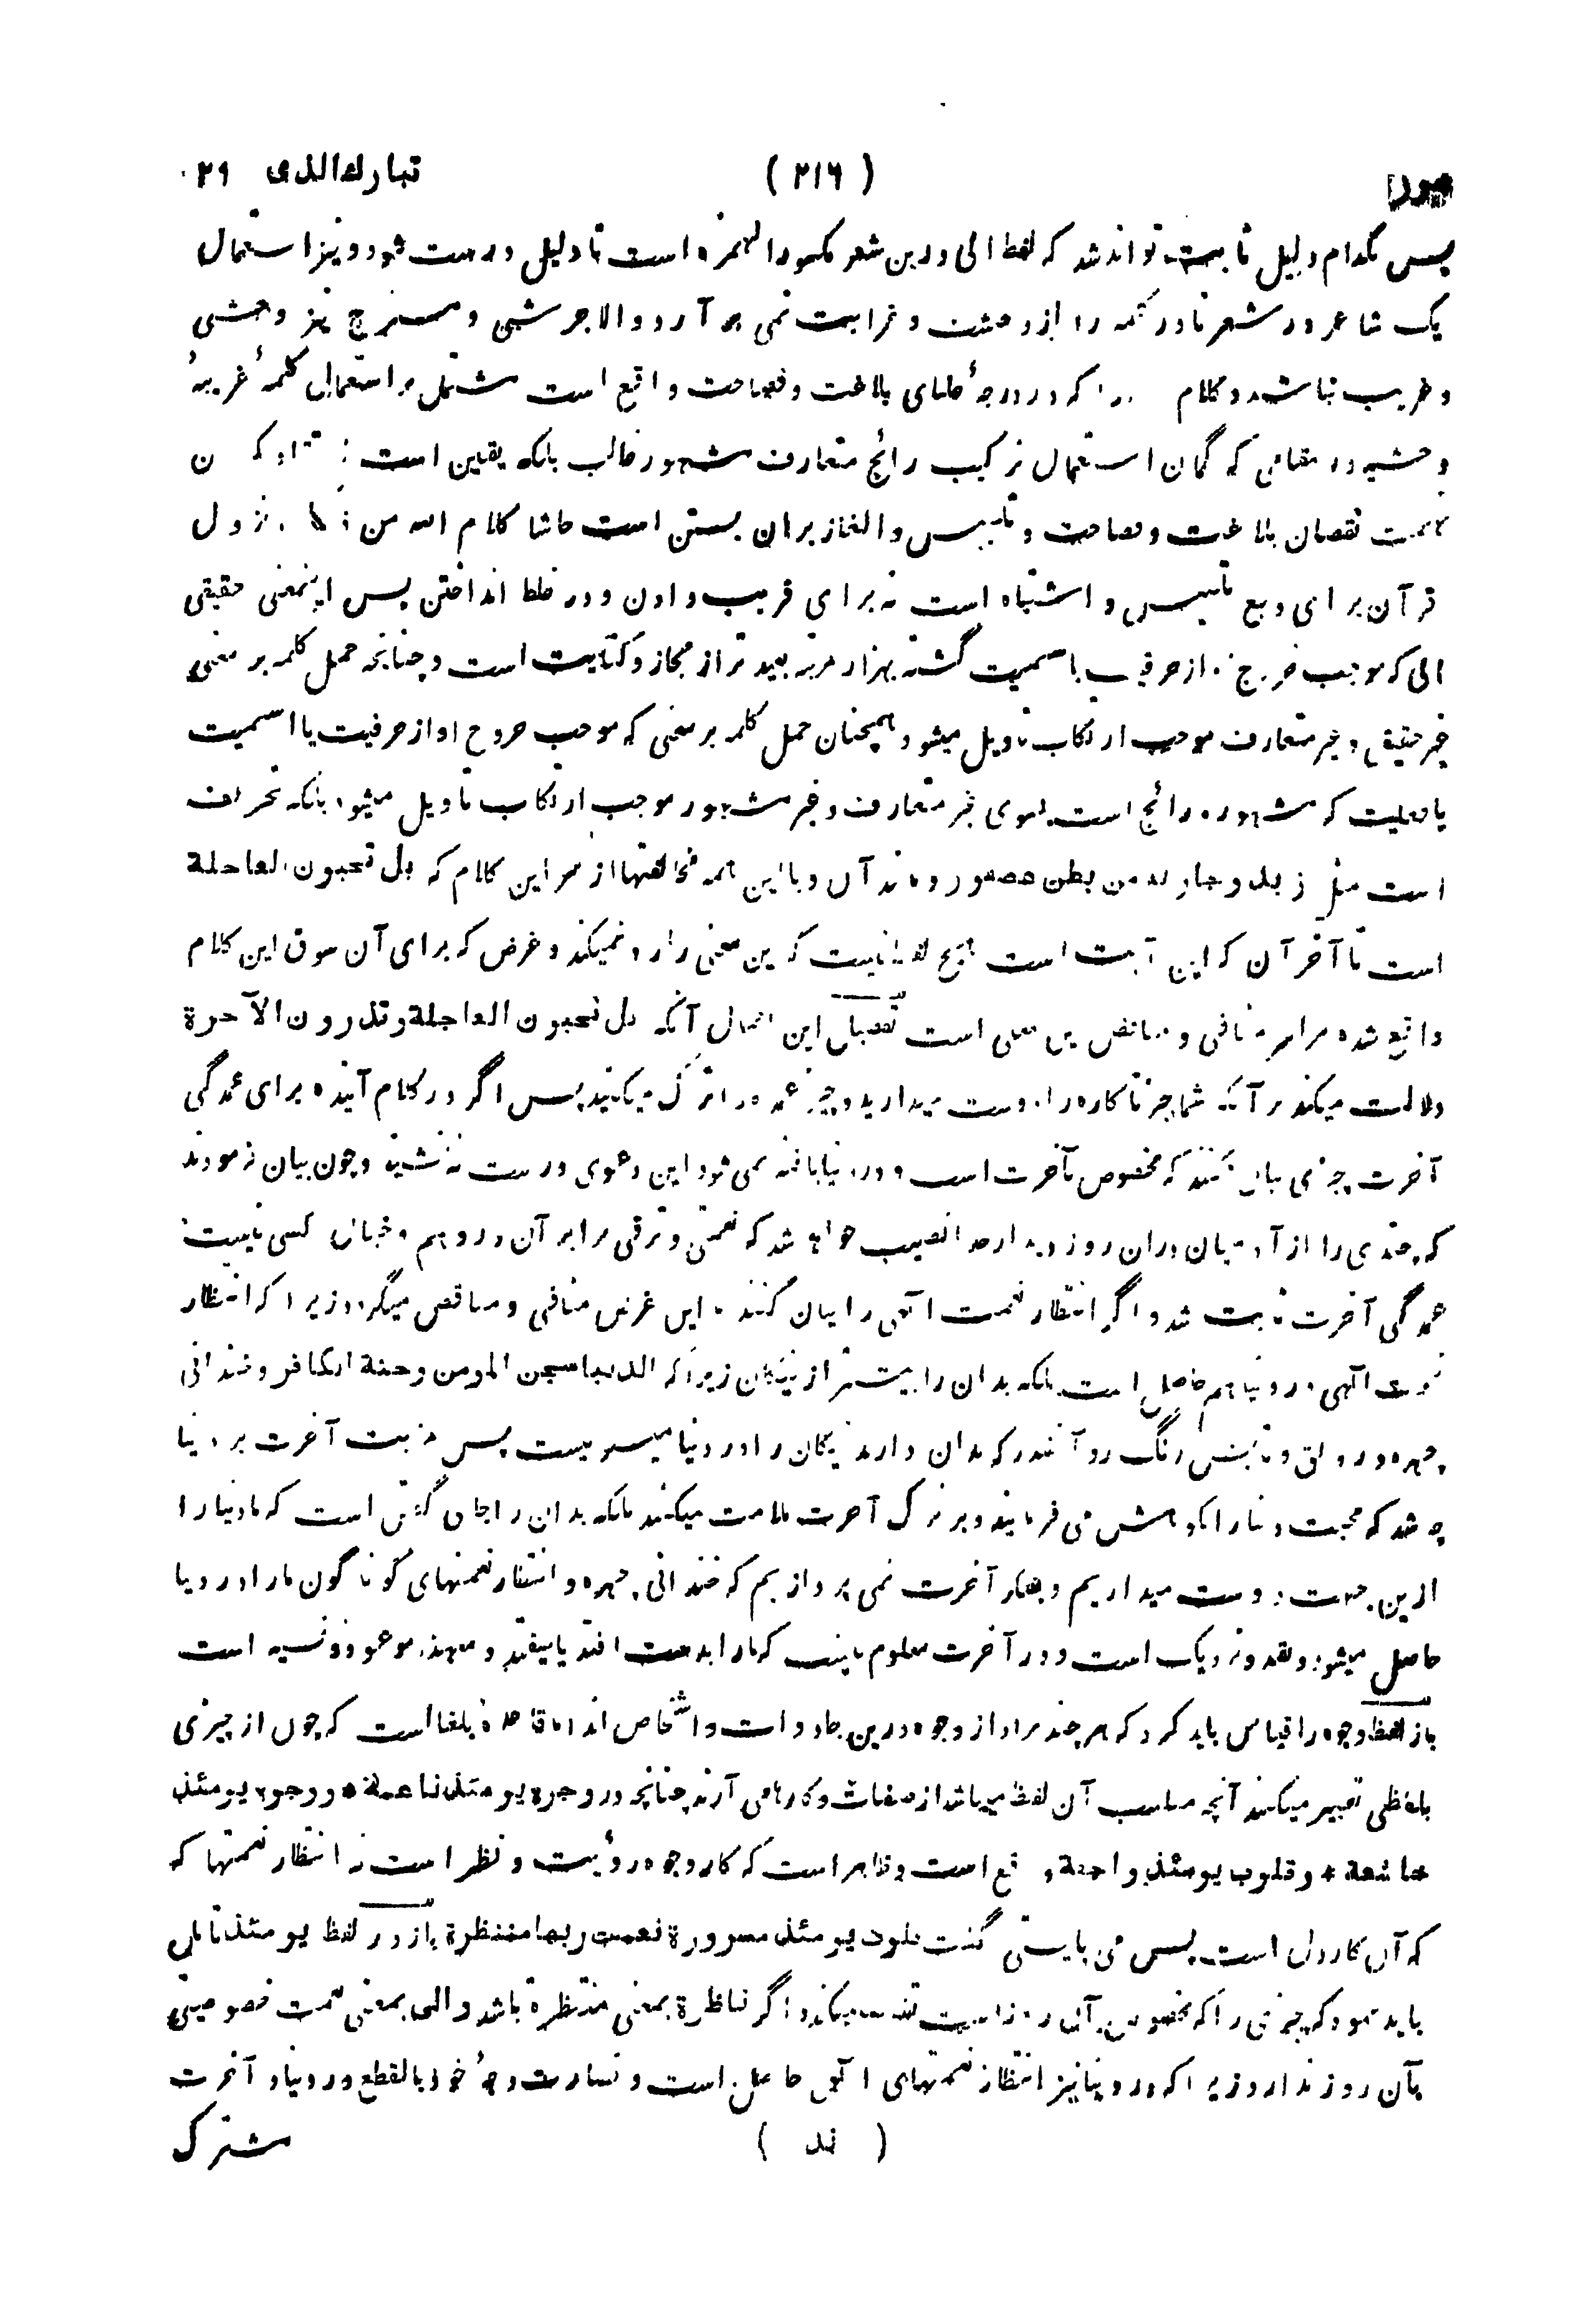 تبارك الذی ۲۹ (۲۱۶)
پس بکدام دلیل ثابت تواند شد که لفظ الی درین شعر مکسور الهمزه است تا دلیل درست شود و نیز استعمال
یک شاعر در شعر نادر کلمه را از وحشت و غرابت نمی بر آرد و الا جرشی و مسرج نیز وحشی
و غریب نباشند و کلام را که در درجهٔ علیای بلاغت و فصاحت واقع است مشتمل بر استعمال کلمهٔ غریبهٔ
وحشیه در مقامی که گمان استعمال ترکیب رائج متعارف مشهور غالب بلکه یقین است
تهمت نقصان بلاغت و فصاحت و تلبیس و الغاز بران بستن است حاشا کلام الله من ذلک نزول
قرآن برای دفع تلبیس و اشتباه است نه برای فریب دادن و در غلط انداختن پس اینمعنی حقیقی
الی که موجب خروج از حرفیت با سمیت گشته بهزار مرتبه بعید تر از مجاز و کنایت است و چنانچه حمل کلمه بر معنی
غیر حقیقی و غیر متعارف موجب ارتکاب تاویل میشود همچنان حمل کلمه بر معنی که موجب خروج او از حرفیت یا اسمیت
یا فعلیت که مشهور و رائج است بسوی غیر متعارف و غیر مشهور موجب ارتکاب تاویل میشود بلکه تحریف
است مثل زید و جار له من بطن عصفور و مانند آن و با این همه مخالفتها از سر این کلام که بل تحبون العاجلة
است تا آخر آن که این آیت است هیچ لفظ نیست که این معنی را رد نمیکند و غرض که برای آن سوق این کلام
واقع شده سراسر منافی و مناقض این معنی است تفصیل این اجمال آنکه بل تحبون العاجلة وتذرون الآخرة
دلالت میکند بر آنکه شما چیز ناکاره را دوست میدارید و چیز عمده را ترک میکنید پس اگر در کلام آینده برای عمدگی
آخرت چیزی بیان کنند که مخصوص بآخرت است و در دنیا یافته نمی شود این دعوی درست نه نشیند و چون بیان فرمودند
که چندی را از آدمیان دران روز دیدار خدا نصیب خواهد شد که نعمتی و ترقی برابر آن در وهم و خیال کسی نیست
عمدگی آخرت ثابت شد و اگر انتظار نعمت الهی را بیان کنند این غرض منافی و مناقض میگردد زیرا که انتظار
نعمت الهی در دنیا هم حاصل است بلکه بدان را بیشتر از نیکان زیرا که الدنیا سجن المومن وجنة الکافر و خندانی
چهره و رونق و تابش رنگ رو آنقدر که بدان دارند نیکان را در دنیا میسر نیست پس مزیت آخرت بر دنیا
چه شد که محبت دنیا را نکوهش می فرمایند و بر ترک آخرت ملامت میکنند بلکه بدان را جای گفتن است که ما دنیا را
ازین جهت دوست میداریم و بکار آخرت نمی پردازیم که خندانی چهره و انتظار نعمتهای گوناگون ما را در دنیا
حاصل میشود و نقد و نزدیک است و در آخرت معلوم نیست که ما را بدست افتد یا نیفتد و معهذا موعود و نسیه است
باز لفظ وجوه را قیاس باید کرد که هر چند مراد از وجوه درین جا ذوات و اشخاص اند اما قاعدهٔ بلغا است که چون از چیزی
بلفظی تعبیر میکنند آنچه مناسب آن لفظ میباشد از صفات و کارها می آرند چنانچه در وجوه یومئذ ناعمة * ووجوه یومئذ
خاشعة * وقلوب یومئذ واجفة واقع است و ظاهر است که کار وجوه رؤیت و نظر است نه انتظار نعمتها که
که آن کار دل است پس می بایستی گفت قلوب یومئذ مسرورة نعمت ربها منتظرة باز در لفظ یومئذ تاملی
باید نمود که چیزی را که مخصوص بآن روز است تقاضا میکند و اگر ناظرة بمعنی منتظرة باشد و الی بمعنی نعمت خصوصیتی
بآن روز ندارد زیرا که در دنیا نیز انتظار نعمتهای الهی حاصل است و نضارت وجهٔ خود بالقطع در دنیا و آخرت
( ند )
مشترک